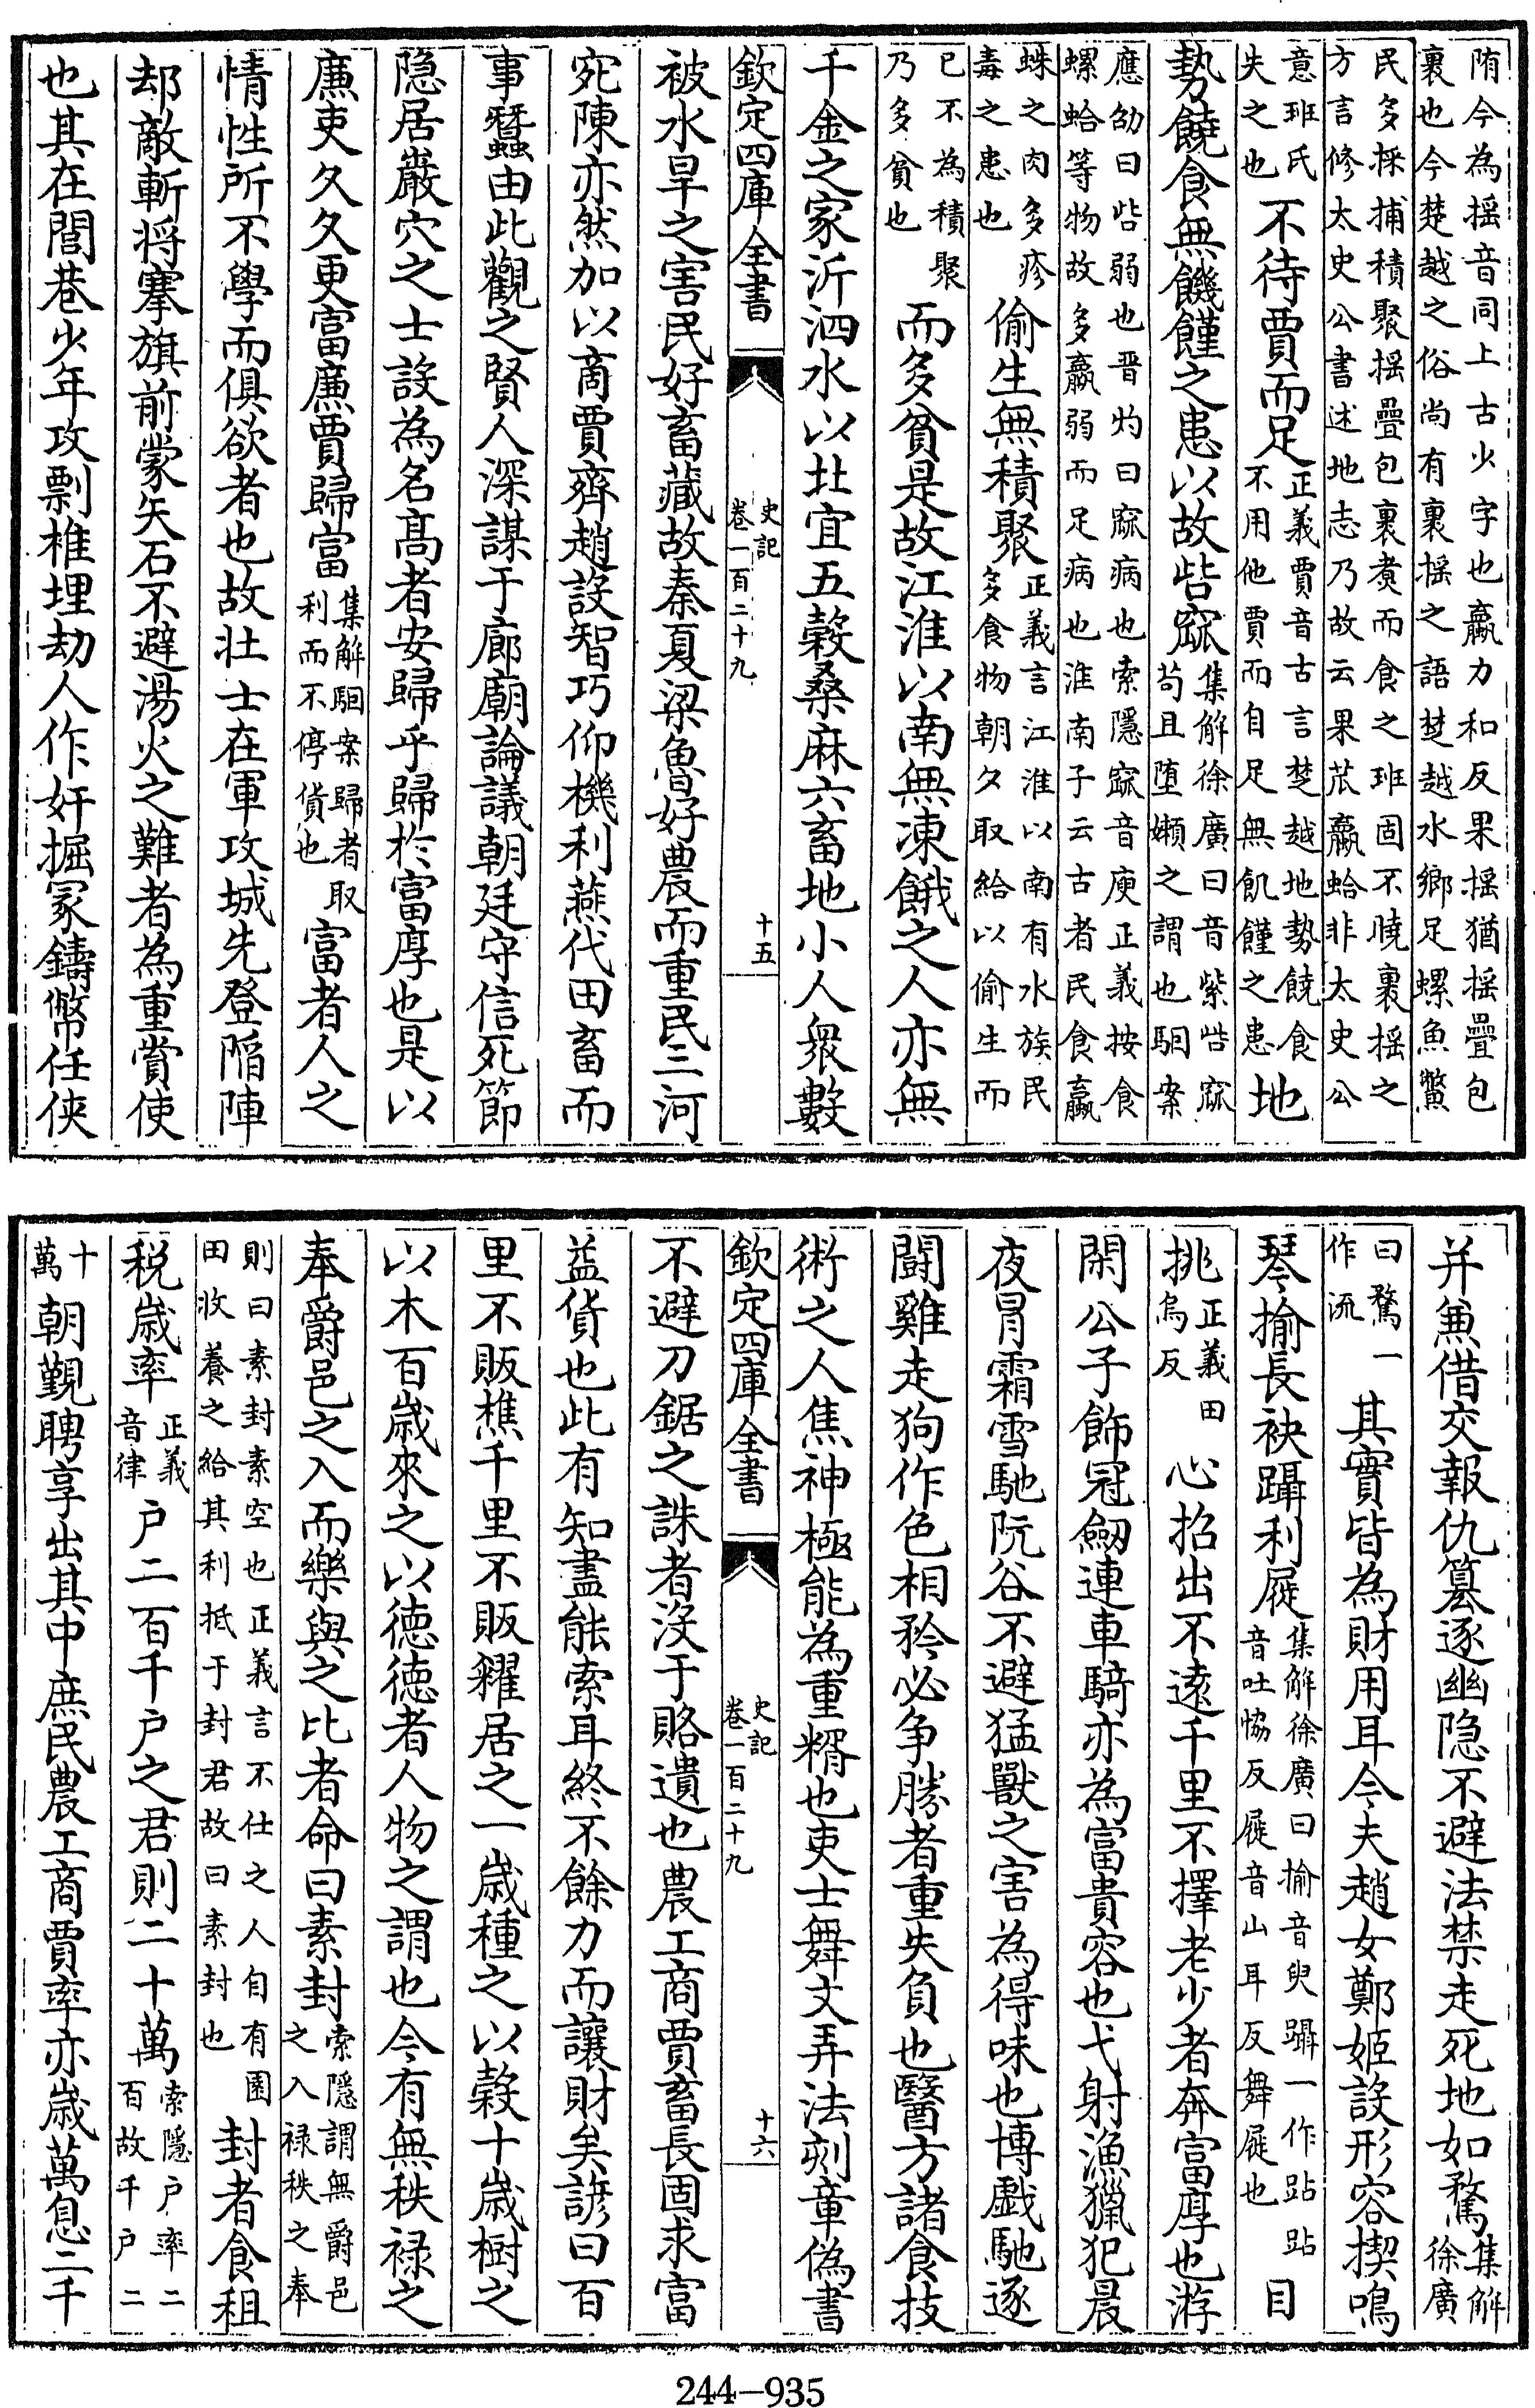 陏今為摇音同上古少字也蠃力和反果摇猶摇疊包
裹也今楚越之俗尚有裹摇之語楚越水鄉足螺魚鱉
民多採捕積聚摇疊包裹煑而食之班固不曉裹摇之
方言修太史公書述地志乃故云果苽蠃蛤非太史公
意班氏失之也不待賈而足正義賈音古言楚越地勢饒食不用他賈而自足無飢饉之患地
勢饒食無饑饉之患以故呰窳集解徐廣曰音紫呰窳苟且堕嬾之謂也駰案
應劭曰呰弱也晋灼曰窳病也索隱窳音庾正義按食
螺蛤等物故多羸弱而足病也淮南子云古者民食蠃
蛛之肉多疹毒之患也偷生無積聚正義言江淮以南有水族民多食物朝夕取給以偷生而
已不為積聚乃多貧也而多貧是故江淮以南無凍餓之人亦無
千金之家沂泗水以北宜五穀桑麻六畜地小人衆數
欽定四庫全書 史記卷一百二十九 十五
被水旱之害民好畜藏故秦夏梁魯好農而重民三河
宛陳亦然加以商賈齊趙設智巧仰機利燕代田畜而
事蠶由此觀之賢人深謀于廊廟論議朝廷守信死節
隐居巖穴之士設為名髙者安歸乎歸於富厚也是以
廉吏久久更富廉賈歸富集解駰案歸者取利而不停貨也富者人之
情性所不學而俱欲者也故壮士在軍攻城先登陷陣
却敵斬將搴旗前蒙矢石不避湯火之難者為重賞使
也其在閭巷少年攻剽椎埋劫人作奸掘冢鑄幣任俠
并兼借交報仇篡逐幽隐不避法禁走死地如騖集解徐廣
曰騖一作流其實皆為財用耳今夫趙女鄭姬設形容揳鳴
琴揄長袂躡利屣集解徐廣曰揄音臾躡一作跕跕音吐恊反屣音山耳反舞屣也目
挑正義田烏反心招出不遠千里不擇老少者奔富厚也游
閑公子飾冠劒連車騎亦為富貴容也弋射漁獵犯晨
夜冒霜雪馳阬谷不避猛獸之害為得味也博戲馳逐
鬭雞走狗作色相矜必争勝者重失負也醫方諸食技
術之人焦神極能為重糈也吏士舞文弄法刻章偽書
欽定四庫全書 史記卷一百二十九 十六
不避刀鋸之誅者沒于賂遺也農工商賈畜長固求富
益貨也此有知盡能索耳終不餘力而讓財矣諺曰百
里不販樵千里不販糴居之一歲種之以穀十歲樹之
以木百歲來之以徳徳者人物之謂也今有無秩禄之
奉爵邑之入而樂與之比者命曰素封索隱謂無爵邑之入禄秩之奉
則曰素封素空也正義言不仕之人自有園田收養之給其利抵于封君故曰素封也封者食租
税歲率正義音律户二百千户之君則二十萬索隱户率二百故千户二
十萬朝覲聘享出其中庶民農工商賈率亦歲萬息二千
244—935